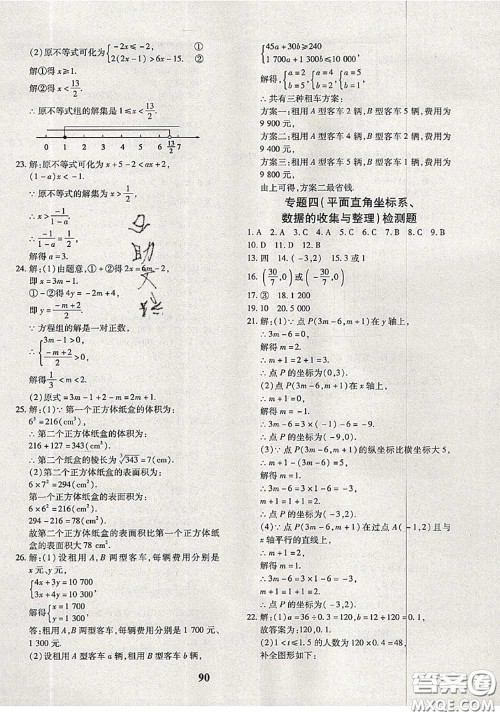 (2)原不等式可化为{-2x≤-2, ①
2(2x-1)>6x-15. ②
解①得x≥1.
解②得x<13/2.
∴原不等式组的解集是1≤x<13/2.
-4 -3 -2 -1 0 1 2 3 4 5 6 13/2 7
23.解:原不等式可化为x+5-2<ax+2,
(1-a)x<-1.
∵原不等式的解集为x>1/2,
∴x>-1/(1-a)
∴-1/(1-a)=1/2.
解得a=3.
24.解:(1)由题意,①+②得2x=6m-2,
即x=3m-1.
①-②得4y=-2m+4,
即y=(-m+2)/2.
∵方程组的解是一对正数,
∴{3m-1>0,
(-m+2)/2>0.
解得1/3<m<2.
(2)原式=3m-1+2-m=2m+1.
25.解:(1)∵第一个正方体纸盒的体积为:
6³=216(cm³),
∴第二个正方体纸盒的体积为:
216+127=343(cm³).
∴第二个纸盒的棱长为³√343=7(cm).
(2)∵第二个正方体纸盒的表面积为:
6×7²=294(cm²).
第一个正方体纸盒的表面积为:
6×6²=216(cm²).
294-216=78(cm²).
故第二个正方体纸盒的表面积比第一个正方
体纸盒的表面积大78 cm².
26.解:(1)设租用A,B两型客车,每辆费用分别是
x元、y元,
{4x+3y=10 700
3x+4y=10 300
解得{x=1 700
y=1 300
答:租用A,B两型客车,每辆费用分别是1 700
元、1 300元.
(2)设租用A型客车a辆,租用B型客车b辆,
{45a+30b≥240
1 700a+1 300b≤10 000
解得,{a=2 b=5, {a=4 b=2, {a=5 b=1.
∴共有三种租车方案:
方案一:租用A型客车2辆,B型客车5辆,费用为
9 900元,
方案二:租用A型客车4辆,B型客车2辆,费用为
9 400元,
方案三:租用A型客车5辆,B型客车1辆,费用为
9 800元,
由上可得,方案二最省钱.
专题四(平面直角坐标系、
数据的收集与整理)检测题
10.D 11.D 12.C
13.四 14.(-3,2) 15.1或-3
16.(30/7,0)或(-30/7,0)
17.③ 18.1 200
19.10 20.5 000
21.解:(1)∵点P(3m-6,m+1)在y轴上,
∴3m-6=0,
解得m=2.
∴m+1=2+1=3.
∴点P的坐标为(0,3).
(2)∵点P(3m-6,m+1)在x轴上,
∴m+1=0,
解得m=-1.
∴3m-6=3×(-1)-6=-9.
∴点P的坐标为(-9,0).
(3)∵点P(3m-6,m+1)的纵坐标比横坐标大5,
∴m+1-(3m-6)=5.
解得m=1.
∴3m-6=3×1-6=-3,
m+1=1+1=2.
∴点P的坐标为(-3,2).
(4)∵点P(3m-6,m+1)在过点A(-1,2)且与
x轴平行的直线上,
∴m+1=2.
解得m=1.
∴3m-6=3×1-6=-3,
m+1=1+1=2.
∴点P的坐标为(-3,2).
22.解:(1)a=36÷0.3=120,b=12÷120=0.1.
故答案为:120,0.1.
(2)1≤t≤1.5的人数为120×0.4=48,
补全图形如下:
90